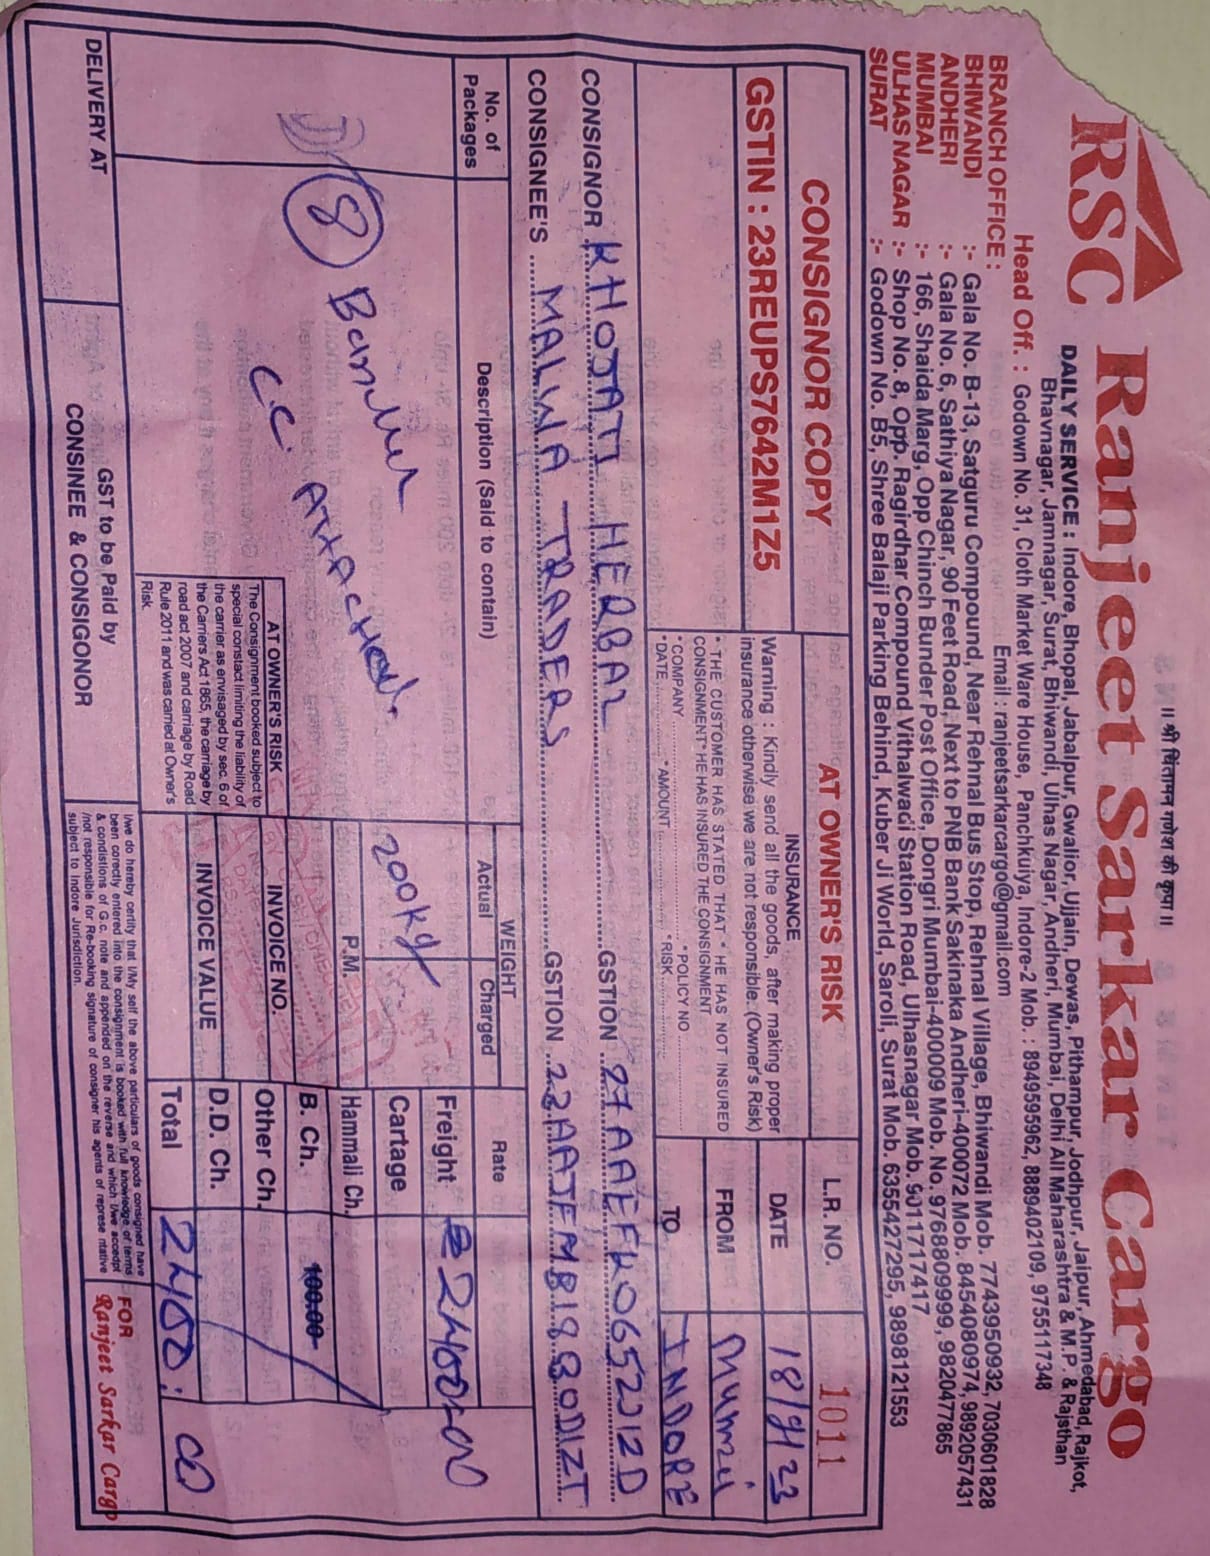 ॥ श्री चिंतामन गणेश की कृपा ॥
RSC Ranjeet Sarkar Cargo
DAILY SERVICE : Indore, Bhopal, Jabalpur, Gwalior, Ujjain, Dewas, Pithampur, Jodhpur, Jaipur, Ahmedabad, Rajkot,
Bhavnagar, Jamnagar, Surat, Bhiwandi, Ulhas Nagar, Andheri, Mumbai, Delhi All Maharashtra & M.P. & Rajsthan
Head Off. : Godown No. 31, Cloth Market Ware House, Panchkuiya, Indore-2 Mob. : 8949595962, 8889402109, 9755117348
Email : ranjeetsarkarcargo@gmail.com
BRANCH OFFICE :
BHIWANDI :- Gala No. B-13, Satguru Compound, Near Rehnal Bus Stop, Rehnal Village, Bhiwandi Mob. 7743950932, 7030601828
ANDHERI :- Gala No. 6, Sathiya Nagar, 90 Feet Road, Next to PNB Bank Sakinaka Andheri-400072 Mob. 8454080974, 9892057431
MUMBAI :- 166, Shaida Marg, Opp Chinch Bunder Post Office, Dongri Mumbai-400009 Mob. No. 9768809999, 9820477865
ULHAS NAGAR :- Shop No. 8, Opp. Ragirdhar Compound Vithalwadi Station Road, Ulhasnagar Mob. 9011717417
SURAT :- Godown No. B5, Shree Balaji Parking Behind, Kuber Ji World, Saroli, Surat Mob. 6355427295, 9898121553
CONSIGNOR COPY
AT OWNER'S RISK
L.R. NO. 1011
GSTIN : 23REUPS7642M1Z5
INSURANCE
Warning : Kindly send all the goods, after making proper
insurance otherwise we are not responsible. (Owner's Risk)
* THE CUSTOMER HAS STATED THAT * HE HAS NOT INSURED
CONSIGNMENT* HE HAS INSURED THE CONSIGNMENT
*COMPANY *POLICY NO
*DATE *AMOUNT *RISK
DATE 18/7/23
FROM Mumbai
TO INDORE
CONSIGNOR KHOJATI HERBAL GSTION 27AAEFK0652J1ZD
CONSIGNEE'S MALWA TRADERS GSTION 23AAJFM8198D1ZT
No. of Packages
Description (Said to contain)
WEIGHT
Actual Charged
Rate
8 Bundles
CC Attached.
200kg
P.M.
Freight 2400=00
Cartage
Hammali Ch.
B. Ch. 100.00
Other Ch.
D.D. Ch.
Total 2400=00
INVOICE NO.
INVOICE VALUE
AT OWNER'S RISK
The Consignment booked subject to
special constact limiting the liability of
the carrier as envisaged by sec. 6 of
the Carriers Act 1865, the carriage by
road act 2007 and carriage by Road
Rule 2011 and was carried at Owner's
Risk
DELIVERY AT
GST to be Paid by
CONSINEE & CONSIGNOR
I/we do hereby certify that I/My self the above particulars of goods consigned have
been corectly entered into the consignment is booked with full knowledge of terms
& condistions of G.c. note and appended on the reverse and which I/we accept
/not responsible for Re-booking signature of consigner his agents of represe ntative
subject to Indore Jurisdiction.
FOR
Ranjeet Sarkar Cargo